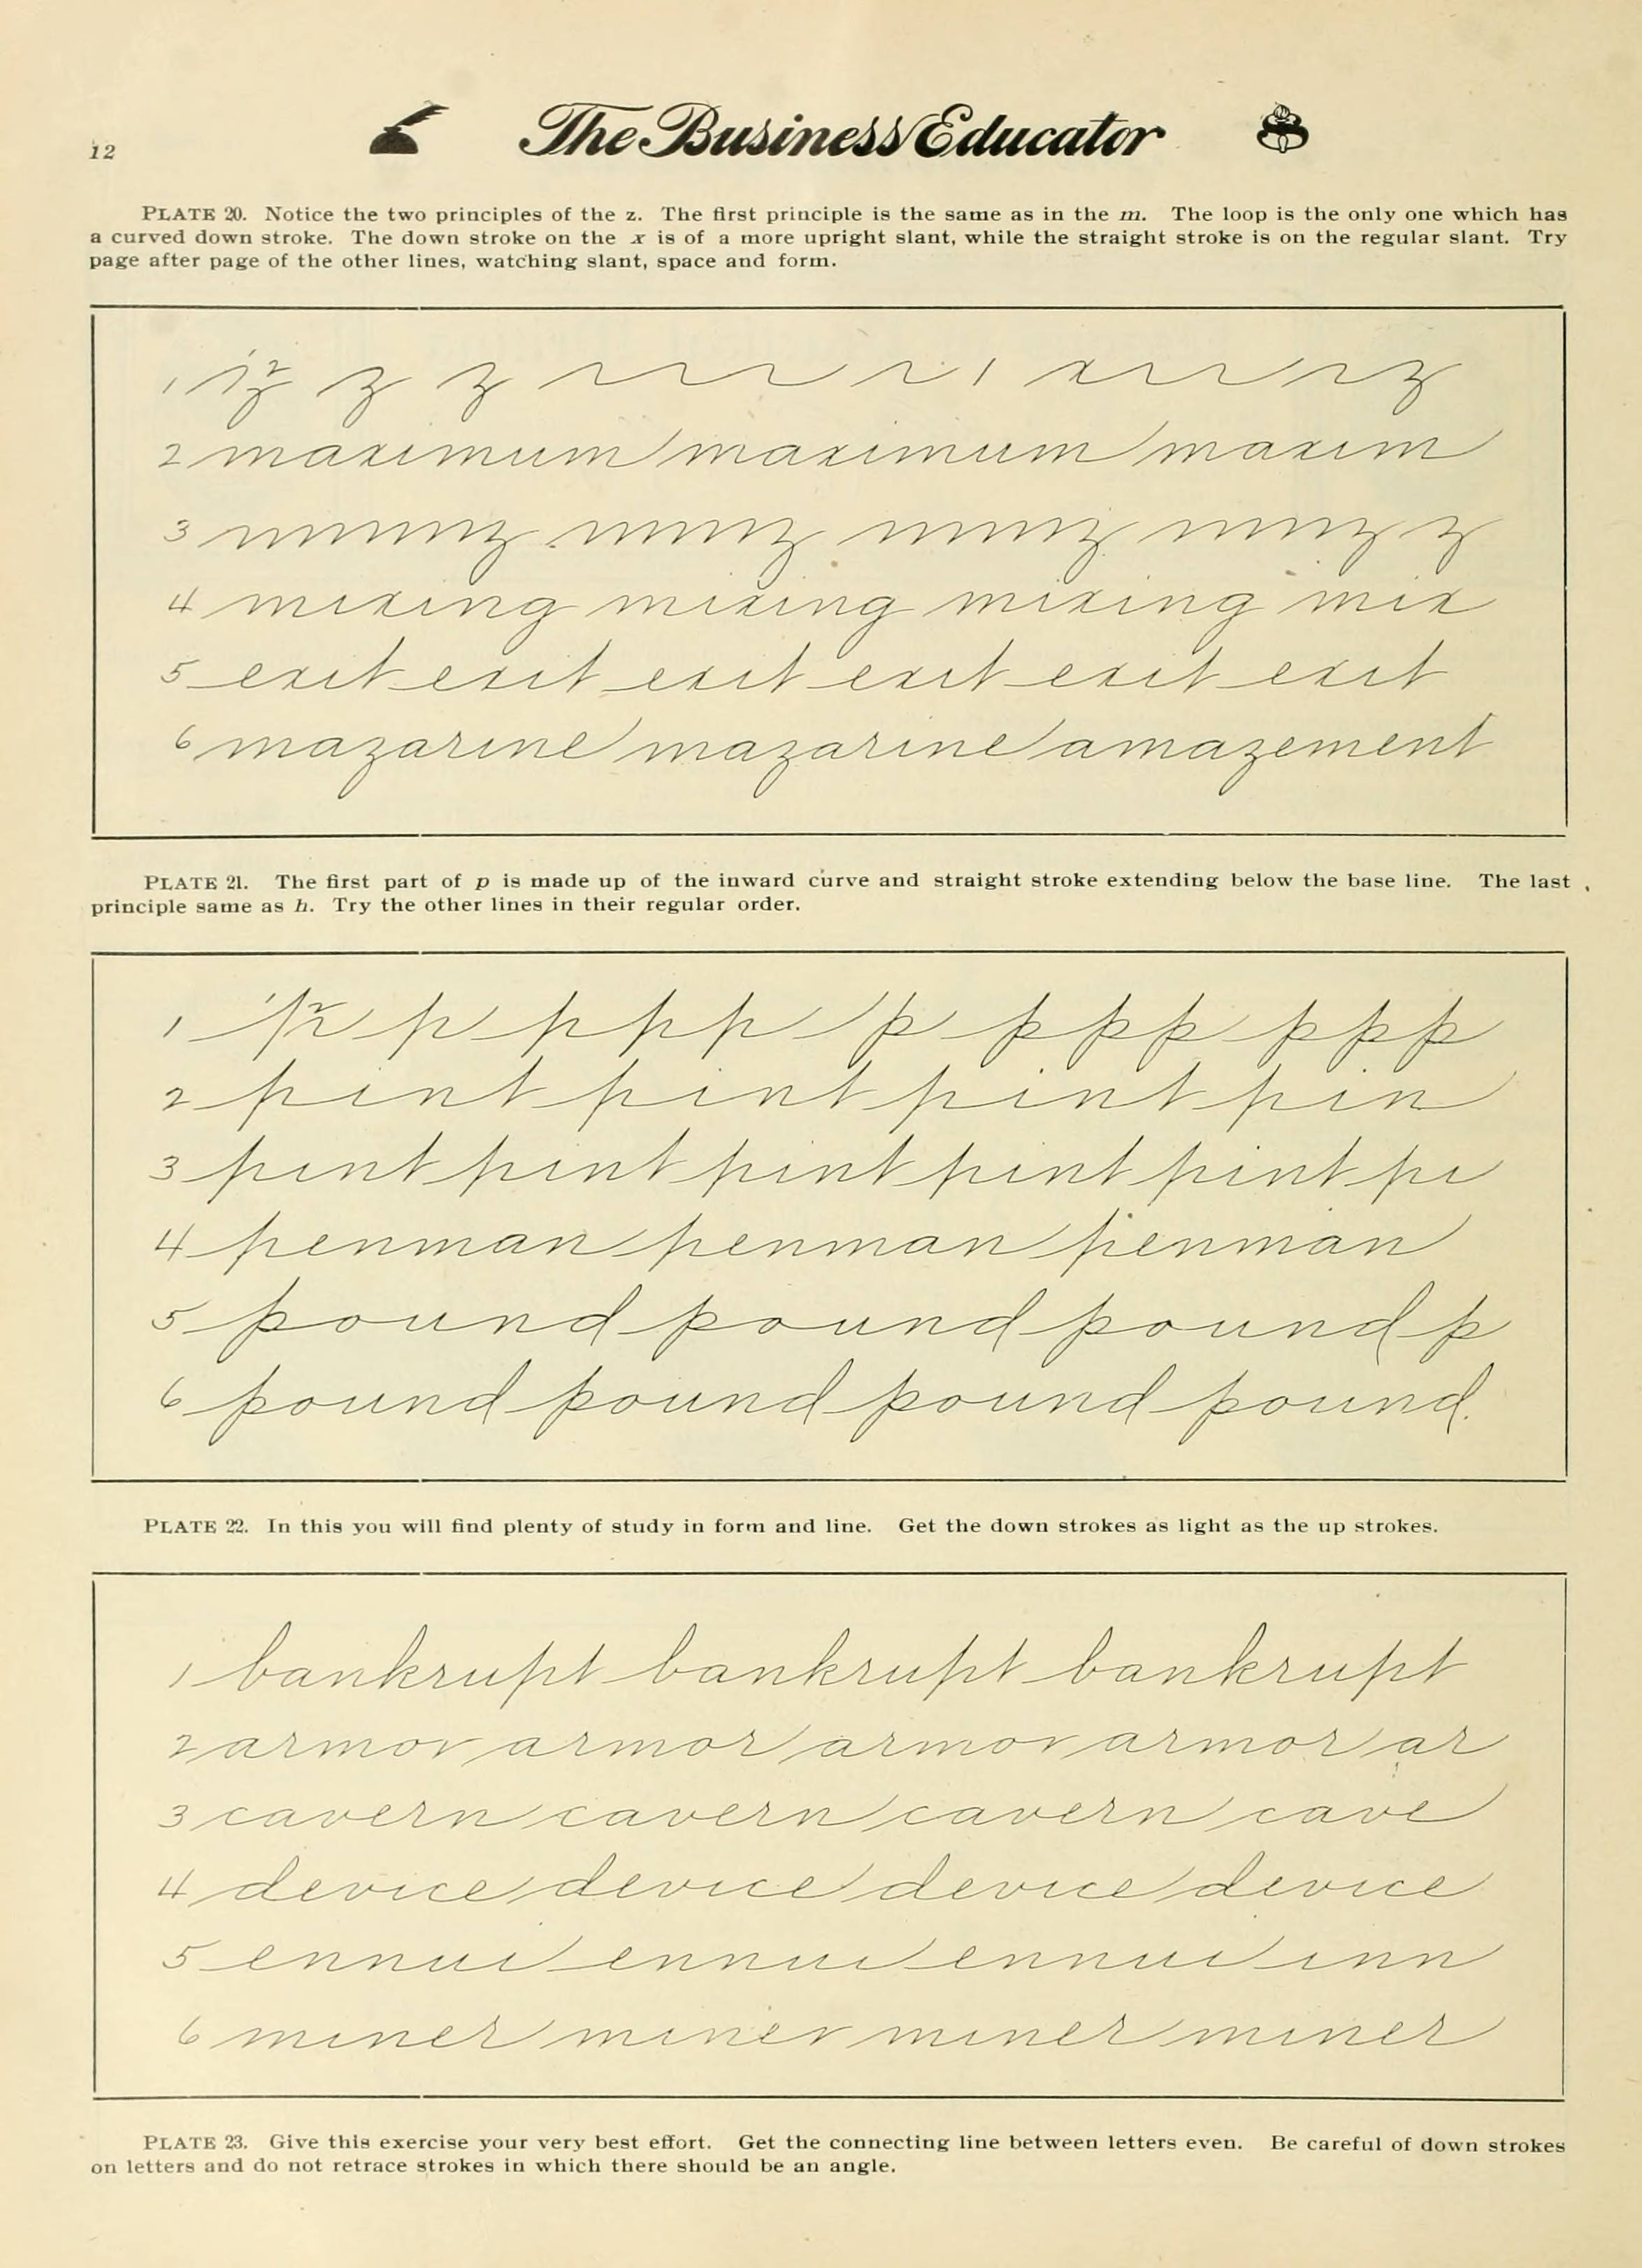 12
The Business Educator
PLATE 20. Notice the two principles of the z. The first principle is the same as in the m. The loop is the only one which has
a curved down stroke. The down stroke on the x is of a more upright slant, while the straight stroke is on the regular slant. Try
page after page of the other lines, watching slant, space and form.
1 z z z x z
2 maximum maximum maxim
3 z z z z z
4 mixing mixing mixing mix
5 exit exit exit exit exit exit
6 mazarine mazarine amazement
PLATE 21. The first part of p is made up of the inward curve and straight stroke extending below the base line. The last
principle same as h. Try the other lines in their regular order.
1 p p p p p p p p p p p p
2 pint pint pint pin
3 pint pint pint pint pint pi
4 penman penman penman
5 pound pound pound p
6 pound pound pound pound
PLATE 22. In this you will find plenty of study in form and line. Get the down strokes as light as the up strokes.
1 bankrupt bankrupt bankrupt
2 armor armor armor armor ar
3 cavern cavern cavern cave
4 device device device device
5 ennui ennui ennui inn
6 miner miner miner miner
PLATE 23. Give this exercise your very best effort. Get the connecting line between letters even. Be careful of down strokes
on letters and do not retrace strokes in which there should be an angle.